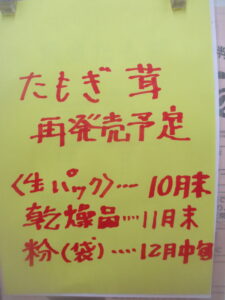 たもぎ茸
再発売予定
〈生パック〉‥‥10月末
乾燥品‥‥11月末
粉(袋)‥‥12月中旬